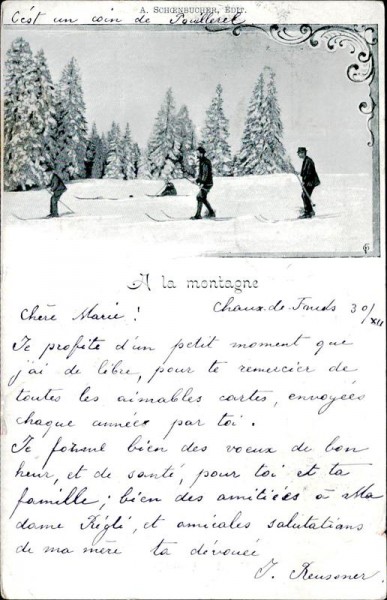 A. SCHŒNBUCHER, EDIT.
C'est un coin de Pouillerel
A la montagne
Chaux-de-Fonds 30/XII
Chère Marie !
Je profite d'un petit moment que
j'ai de libre, pour te remercier de
toutes les aimables cartes, envoyées
chaque année par toi.
Je formule bien des voeux de bon
heur, et de santé, pour toi et ta
famille; bien des amitiées à Ma
dame Réglé, et amicales salutations
de ma mère ta dévouée
J. Reussner.